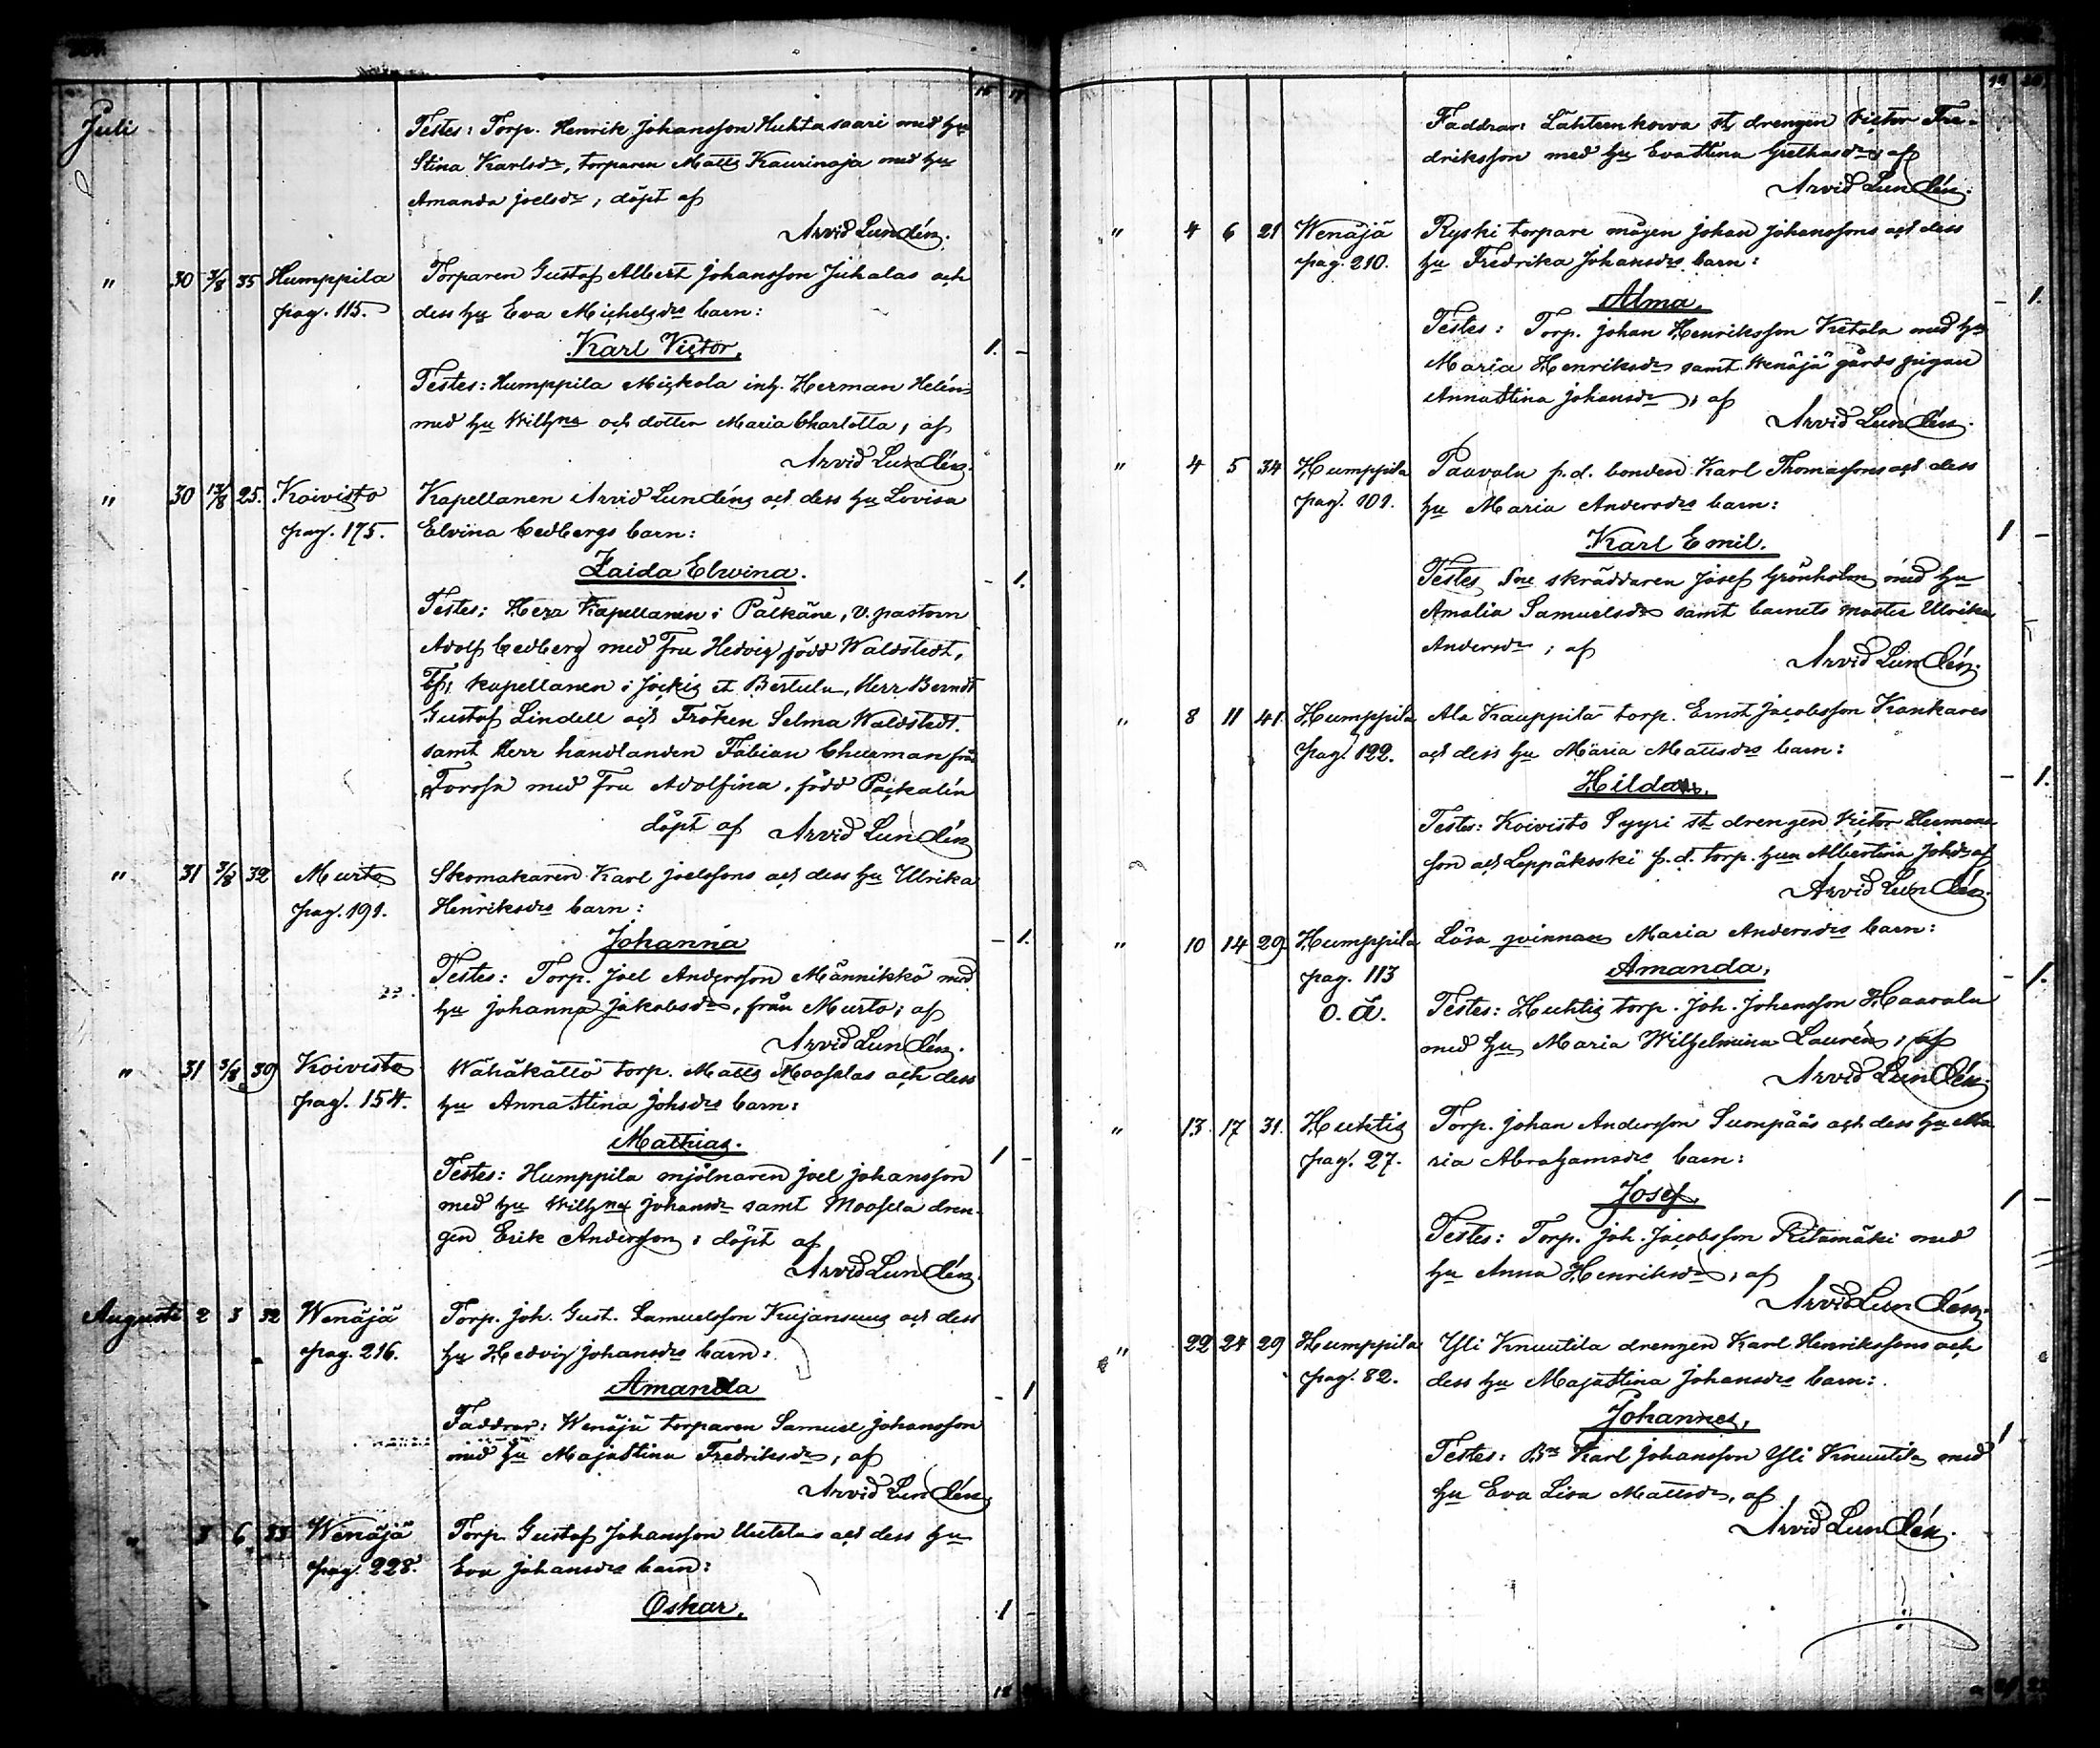 16 17
Juli
Testes: Torp. Henrik Johansson Huhtasaari med hu
Stina Karlsdr, torparen Matts Kaurinoja med hu
Amanda Joelsdr, döpt af
Arvid Lundén.
" 30 3/8 35 Humppila Torparen Gustaf Albert Johansson Juhalas och
pag. 115. dess hu Eva Michelsdrs barn:
Karl Victor. 1. –
Testes: Humppila Mickola inh. Herman Helén
med hu Willhna och dotter Maria Charlotta, af
Arvid Lundén.
" 30 13/8 25. Koivisto Kapellanen Arvid Lundéns och dess hu Lovisa
pag. 175. Elvina Cedbergs barn:
Zaida Elwina. – 1.
Testes: Herr Kapellanen i Pälkäne, v. pastorn
Adolf Cedberg med Fru Hedvig född Waldstedt,
kapellanen i Jockis et Bertula, Herr Berndt
Gustaf Lindell och Fröken Selma Waldstedt.
samt Herr handlanden Fabian Churman från
Forssa med Fru Adolfina, född Päckalén
döpt af Arvid Lundén
" 31 3/8 32 Murto Skomakaren Karl Joelssons och dess hu Ulrika
pag. 191. Henriksdrs barn:
Johanna – 1.
Testes: Torp. Joel Andersson Männikkö med
hu Johanna Jakobsdr, från Murto; af
Arvid Lundén.
" 31 3/8 39 Koivisto Wähäkättö torp. Matts Mooselas och dess
pag. 154. hu Anna Stina Johsdrs barn:
Mathias. 1 –
Testes: Humppila mjölnaren Joel Johansson
med hu Willhna Johansdr samt Moosela dren-
gen Erik Andersson; döpt af
Arvid Lundén.
Augusti 2 3 32 Wenäjä Torp. Joh. Gust. Samuelsson Kujansuus och dess
pag. 216. hu Hedvig Johansdrs barn:
Amanda – 1
Faddrar: Wenäjä torparen Samuel Johansson
med hu Maja Stina Fredriksdr; af
Arvid Lundén
" 3 6 33 Wenäjä Torp. Gustaf Johansson Uutelas och dess hu
pag. 228. Eva Johansdrs barn:
Oskar. 1 –
18
19 20
Faddrar: Lähteenkorva st. drengen Victor Fre-
driksson med hu Eva Stina Grelhasdr; af
Arvid Lundén.
" 4 6 21 Wenäjä Ryski torpare mågen Johan Johanssons och dess
pag. 210. hu Fredrika Johansdrs barn:
Alma. – 1.
Testes: Torp. Johan Henriksson Ketola med hu
Maria Henriksdr samt Wenäjä gårds pigan
Anna Stina Johansdr; af
Arvid Lundén.
" 4 5 34 Humppila Paavola f.d. bonden Karl Thomassons och dess
pag. 101. hu Maria Andersdrs barn:
Karl Emil. 1 –
Testes skräddaren Josef Grönholm med hu
Amalia Samuelsdr samt barnets moster Ulrika
Andersdr; af
Arvid Lundén.
" 8 11 41 Humppila Ala Kauppila torp. Ernst Jacobsson Kankares
pag. 122. och dess hu Maria Mattsdrs barn:
Hilda. – 1.
Testes: Koivisto Syyri st. drengen Victor Hermans-
son och Leppäkoski f.d. torp. hun Albertina Johdr; af
Arvid Lundén.
" 10 14 29 Humppila Lösa qvinnan Maria Andersdrs barn:
pag. 113 Amanda. – 1.
o. ä. Testes: Huhtis torp. Joh. Johansson Haavala
med hu Maria Wilhelmina Laurén; af
Arvid Lundén.
" 13. 17 31. Huhtis Torp. Johan Andersson Suonpääs och dess hu Ma-
pag. 27. ria Abrahamsdrs barn:
Josef. 1 –
Testes: Torp. Joh. Jacobsson Ritamäki med
hu Anna Henriksdr; af
Arvid Lundén.
" 22 24 29 Humppila Yli Knuutila drengen Karl Henrikssons och
pag. 82. dess hu Maja Stina Johansdrs barn:
Johannes. 1
Testes: Bn Karl Johansson Yli Knuutila med
hu Eva Lisa Mattsdr, af
Arvid Lundén.